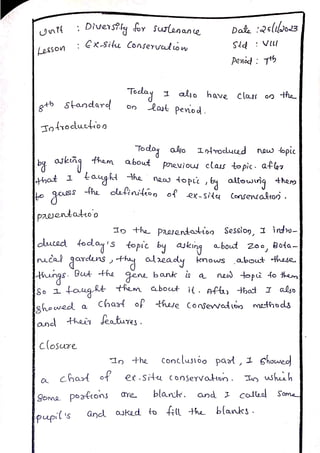 Unit : Diversity for Sustenance Date : 25/1/2023
Lesson : Ex-situ Conservation Std : VIII
Period : 7th
Today I also have class on the
8th standard on last period.
Introduction
Today also Introduced new topic
by asking them about previous class topic. after
that I taught the new topic, by allowing them
to guess the definition of ex-situ conservation.
presentatio
In the presentation session, I intro-
duced today's topic by asking about Zoo, Bota-
nical gardens, they already knows about these
things. But the gene bank is a new topic to them
So I taught them about it. After that I also
showed a chart of these conservation methods
and their features.
Closure
In the conclusion part, I showed
a chart of ex-situ conservation. In which
some portions are blank. and I called some
pupil's and asked to fill the blanks.